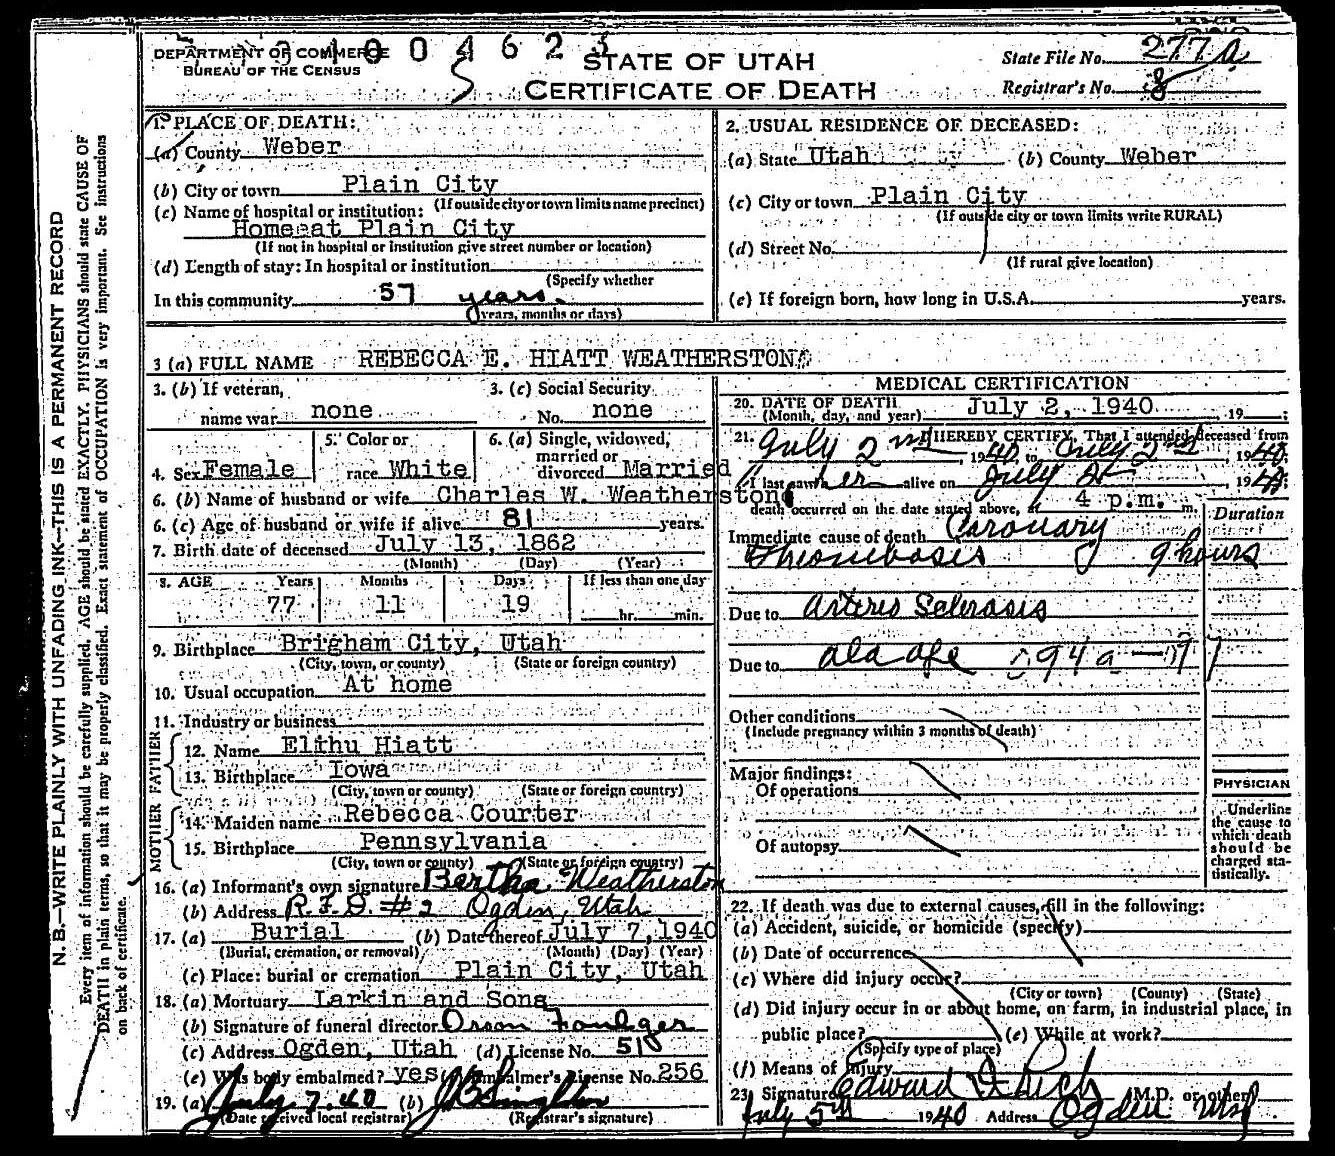 DEPARTMENT OF COMMERCE
BUREAU OF THE CENSUS
STATE OF UTAH
CERTIFICATE OF DEATH
State File No. 277a
Registrar's No. 8
N. B.—WRITE PLAINLY WITH UNFADING INK—THIS IS A PERMANENT RECORD
Every item of information should be carefully supplied. AGE should be stated EXACTLY. PHYSICIANS should state CAUSE OF
DEATH in plain terms, so that it may be properly classified. Exact statement of OCCUPATION is very important. See instructions
on back of certificate.
1. PLACE OF DEATH:
(a) County Weber
(b) City or town Plain City
(If outside city or town limits name precinct)
(c) Name of hospital or institution:
Home at Plain City
(If not in hospital or institution give street number or location)
(d) Length of stay: In hospital or institution
(Specify whether
In this community 57 years.
years, months or days)
2. USUAL RESIDENCE OF DECEASED:
(a) State Utah (b) County Weber
(c) City or town Plain City
(If outside city or town limits write RURAL)
(d) Street No.
(If rural give location)
(e) If foreign born, how long in U.S.A. years.
3 (a) FULL NAME REBECCA E. HIATT WEATHERSTON
3. (b) If veteran, 3. (c) Social Security
name war none No. none
4. Sex Female 5. Color or race White 6. (a) Single, widowed, married or divorced Married
6. (b) Name of husband or wife Charles W. Weatherston
6. (c) Age of husband or wife if alive 81 years.
7. Birth date of deceased July 13, 1862
(Month) (Day) (Year)
8. AGE Years Months Days If less than one day
77 11 19 hr. min.
9. Birthplace Brigham City, Utah
(City, town, or county) (State or foreign country)
10. Usual occupation At home
11. Industry or business
FATHER
12. Name Elihu Hiatt
13. Birthplace Iowa
(City, town or county) (State or foreign country)
MOTHER
14. Maiden name Rebecca Courter
15. Birthplace Pennsylvania
(City, town or county) (State or foreign country)
16. (a) Informant's own signature Bertha Weatherston
(b) Address R.F.D. #2 Ogden, Utah
17. (a) Burial (b) Date thereof July 7, 1940
(Burial, cremation, or removal) (Month) (Day) (Year)
(c) Place: burial or cremation Plain City, Utah
18. (a) Mortuary Larkin and Sons
(b) Signature of funeral director Orson Foulger
(c) Address Ogden, Utah (d) License No. 518
(e) Was body embalmed? yes Embalmer's License No. 256
19. (a) July 7-40 (b)
(Date received local registrar) (Registrar's signature)
MEDICAL CERTIFICATION
20. DATE OF DEATH
(Month, day, and year) July 2, 1940 , 19 ;
21. I HEREBY CERTIFY, That I attended deceased from
July 2nd, 1940, to July 2nd, 1940;
I last saw her alive on July 2, 1940;
death occurred on the date stated above, at 4 p.m. m.
Duration
Immediate cause of death Coronary
Thrombosis 9 hours
Due to Arterio Sclerosis
Due to old age 94a—97
Other conditions
(Include pregnancy within 3 months of death)
Major findings:
Of operations
Of autopsy
PHYSICIAN
Underline
the cause to
which death
should be
charged sta-
tistically.
22. If death was due to external causes, fill in the following:
(a) Accident, suicide, or homicide (specify)
(b) Date of occurrence
(c) Where did injury occur?
(City or town) (County) (State)
(d) Did injury occur in or about home, on farm, in industrial place, in
public place? (e) While at work?
(Specify type of place)
(f) Means of Injury
23. Signature Edward I Rich (M.D. or other)
July 5th 1940 Address Ogden Utah